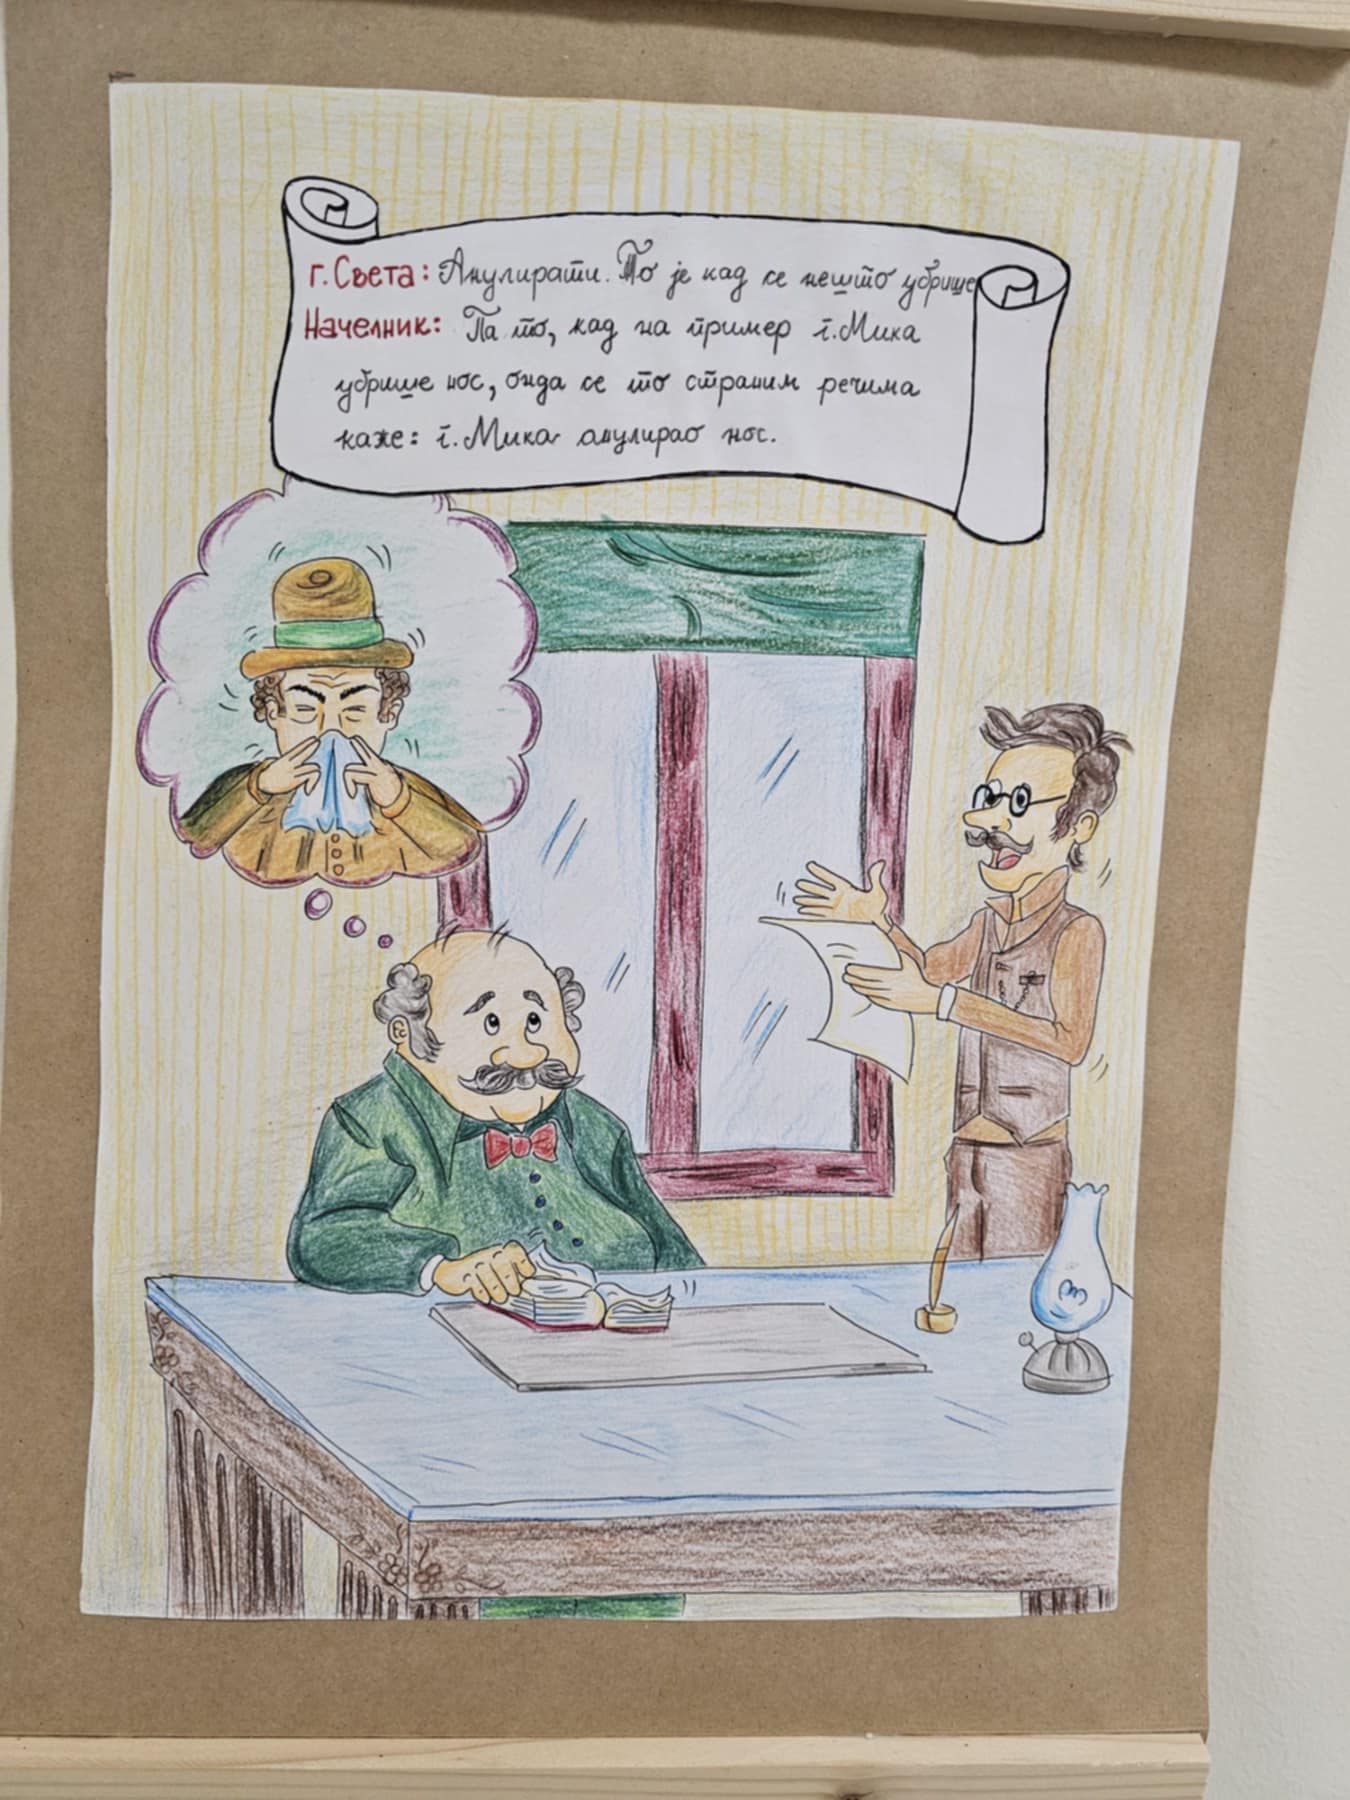 г. Света: Анулирати. То је кад се нешто убрише
Начелник: Па то, кад на пример г. Мика
убрише нос, онда се то страним речима
каже: г. Мика анулирао нос.